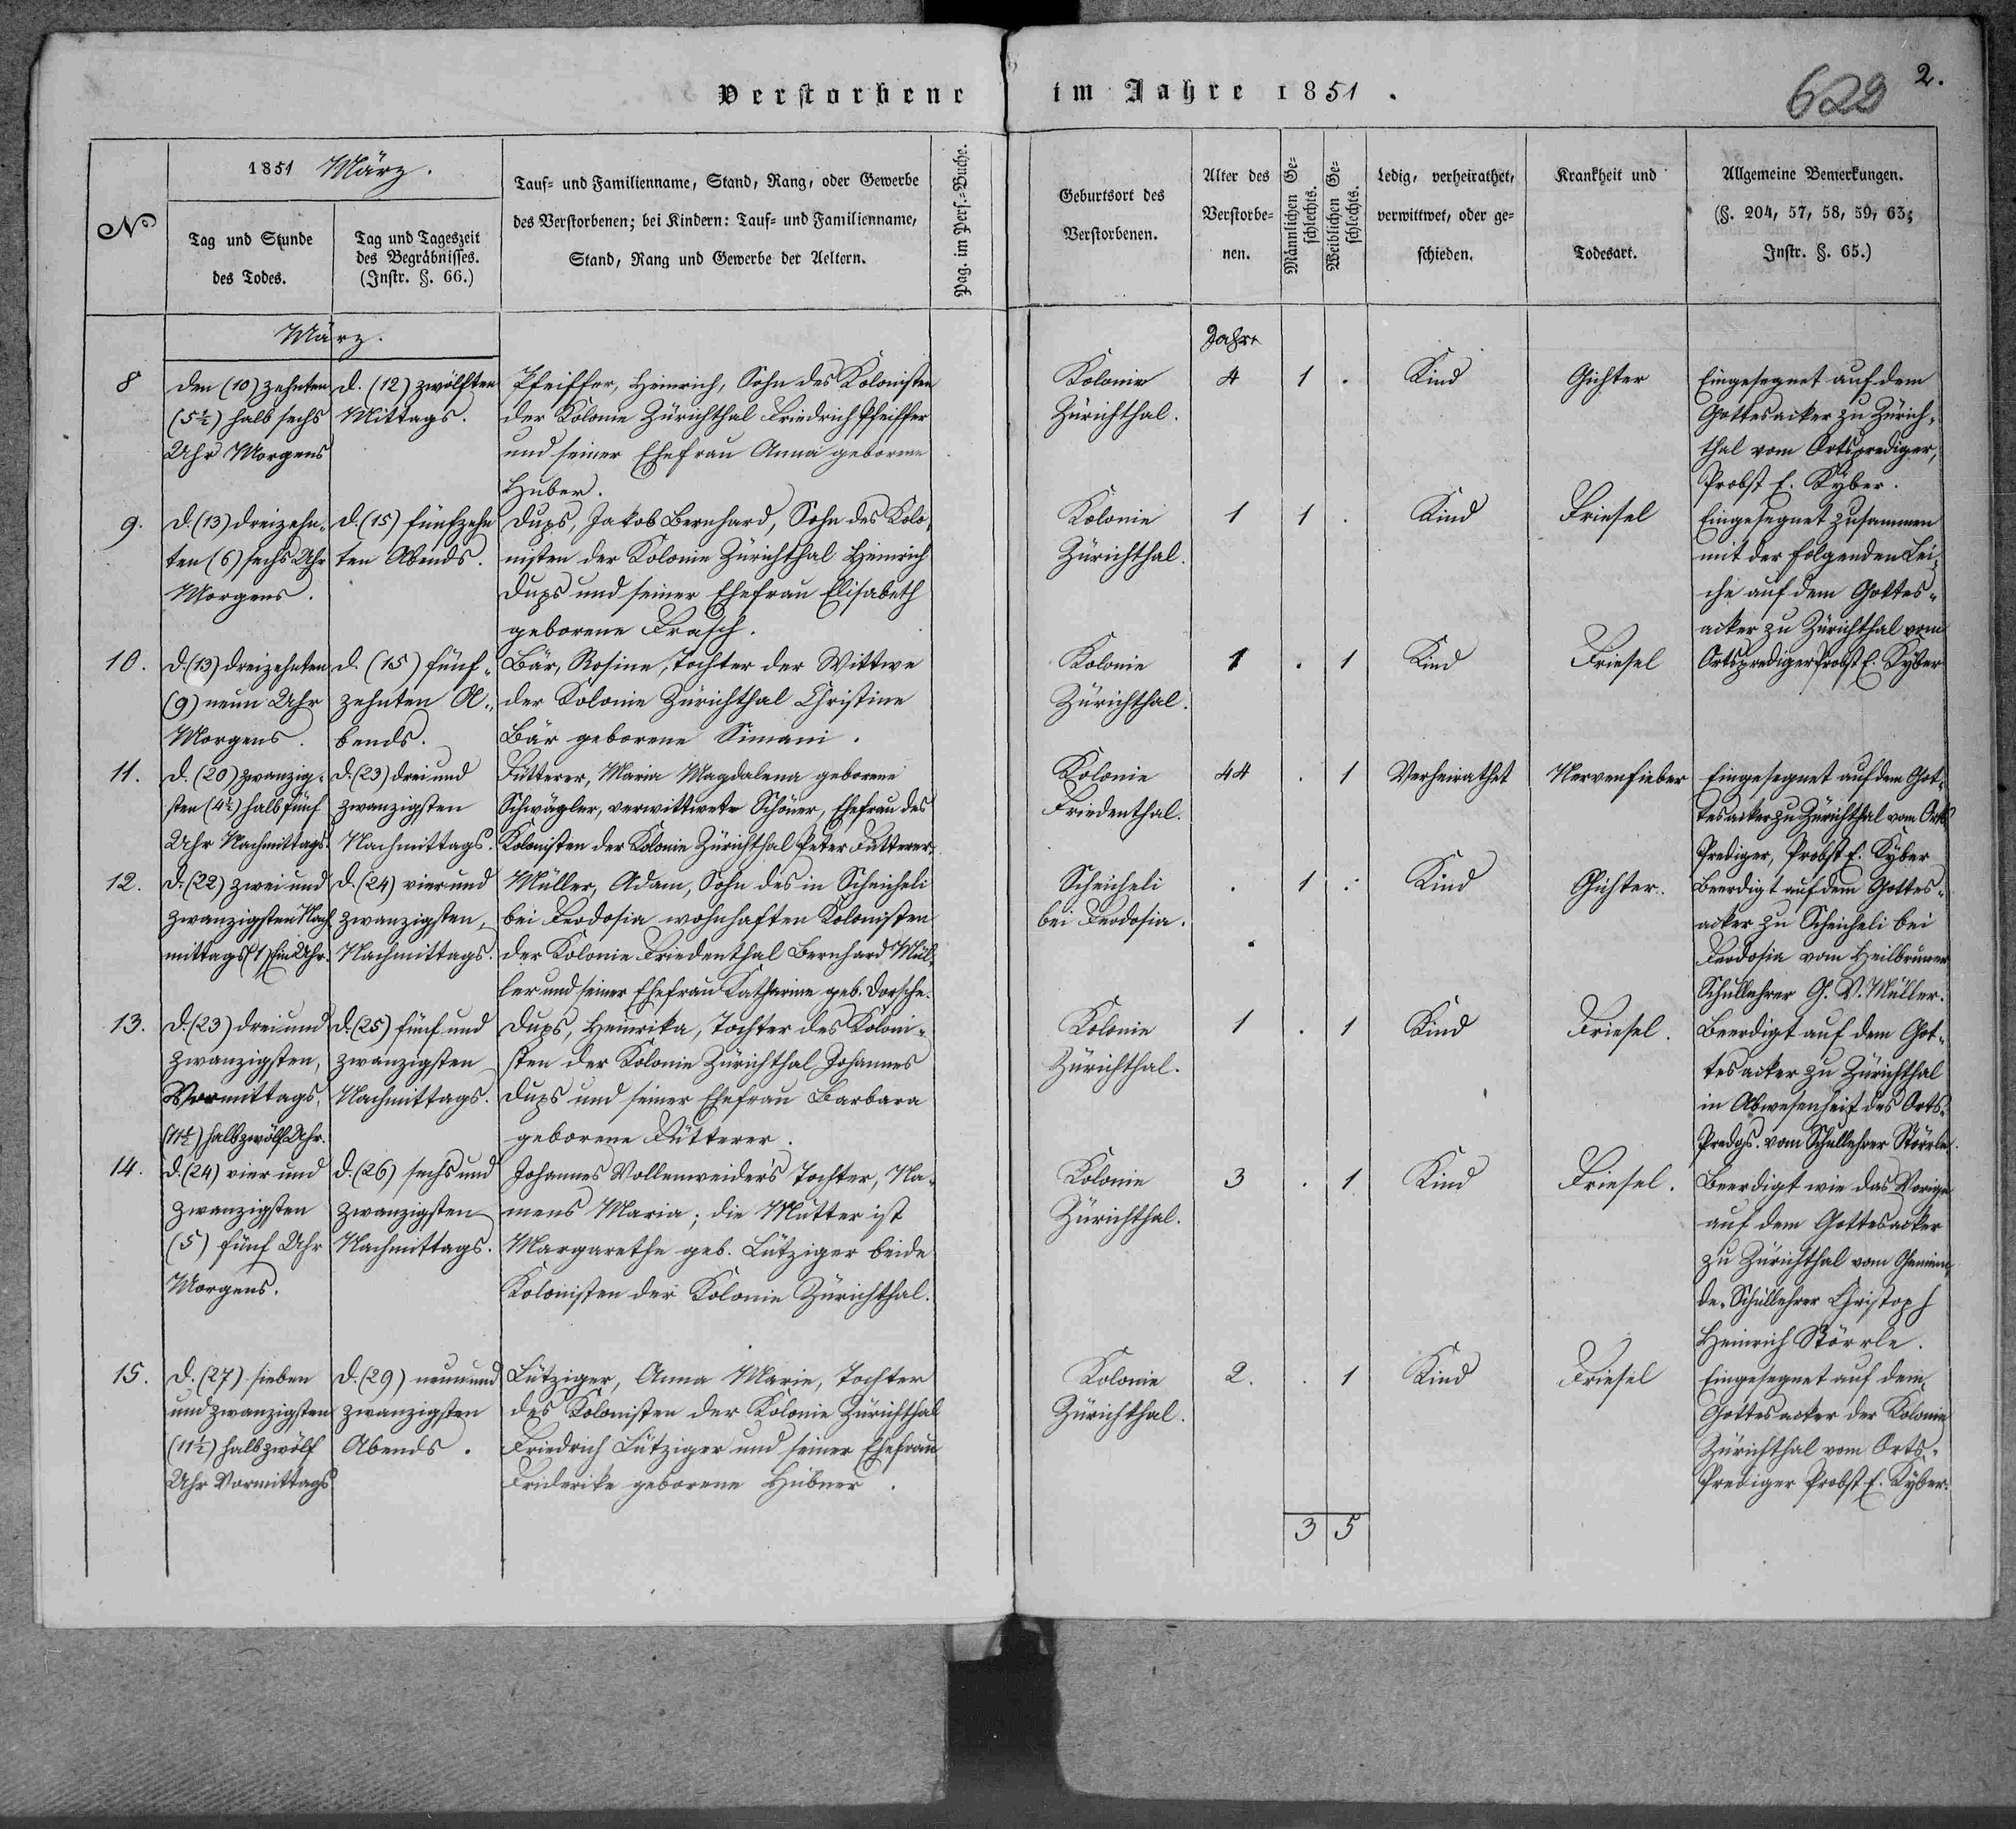 Verstorbene im Jahre 1851.
2.
629
No
1851 März.
Tag und Stunde
des Todes.
Tag und Tageszeit
des Begräbnisses.
(Instr. §. 66.)
Tauf= und Familienname, Stand, Rang, oder Gewerbe
des Verstorbenen; bei Kindern: Tauf= und Familienname,
Stand, Rang und Gewerbe der Aeltern.
Pag. im Pers.=Buche.
Geburtsort des
Verstorbenen.
Alter des
Verstorbe=
nen.
Männlichen Ge=
schlechts.
Weiblichen Ge=
schlechts.
Ledig, verheirathet,
verwittwet, oder ge=
schieden.
Krankheit und
Todesart.
Allgemeine Bemerkungen.
(§. 204, 57, 58, 59, 63;
Instr. §. 65.)
März.
Jahre
8
den (10) zehnten
(5½) halb sechs
Uhr Morgens
d. (12) zwölften
Mittags.
Pfeiffer, Heinrich, Sohn des Kolonisten
der Kolonie Zürichthal Friedrich Pfeiffer
und seiner Ehefrau Anna geborene
Huber.
Kolonie
Zürichthal.
4
1
.
Kind
Gichter
Eingesegnet auf dem
Gottesacker zu Zürich-
thal vom Ortsprediger,
Probst E. Kyber.
9.
d. (13) dreizehn-
ten (6) sechs Uhr
Morgens.
d. (15) fünfzehn
ten Abends.
Dups, Jakob Bernhard, Sohn des Kolo-
nisten der Kolonie Zürichthal Heinrich
Dups und seiner Ehefrau Elisabeth
geborene Frasch.
Kolonie
Zürichthal.
1
1
.
Kind
Friesel
Eingesegnet zusammen
mit der folgenden Lei-
che auf dem Gottes-
acker zu Zürichthal vom
Ortsprediger Probst E. Kyber
10.
d. (13) dreizehnten
(9) neun Uhr
Morgens.
d. (15) fünf-
zehnten A-
bends.
Bär, Rosine, Tochter der Wittwe
der Kolonie Zürichthal Christine
Bär geborene Simani.
Kolonie
Zürichthal.
1
.
1
Kind
Friesel
11.
d. (20) zwanzig-
sten (4½) halb fünf
Uhr Nachmittags.
d. (23) drei und
zwanzigsten
Nachmittags.
Fütterer, Maria Magdalena geborene
Schwägler, verwittwete Schöner, Ehefrau des
Kolonisten der Kolonie Zürichthal Peter Fütterer.
Kolonie
Friedenthal.
44
.
1
Verheirathet
Nervenfieber
Eingesegnet auf dem Got-
tesacker zu Zürichthal vom Orts
Prediger, Probst E. Kyber
12.
d. (22) zwei und
zwanzigsten Nach
mittags (1) Ein Uhr.
d. (24) vier und
zwanzigsten,
Nachmittags.
Müller, Adam, Sohn des in Scheicheli
bei Feodosia wohnhaften Kolonisten
der Kolonie Friedenthal Bernhard Mül-
ler und seiner Ehefrau Katharine geb. Dorsche.
Scheicheli
bei Feodosia.
.
1
.
Kind
Gichter.
Beerdigt auf dem Gottes-
acker zu Scheicheli bei
Feodosia vom Heilbruner
Schullehrer G. V. Müller.
13.
d. (23) drei und
zwanzigsten,
Vormittags,
(11½) halb zwölf Uhr.
d. (25) fünf und
zwanzigsten
Nachmittags.
Dups, Heinrika, Tochter des Koloni-
sten der Kolonie Zürichthal Johannes
Dups und seiner Ehefrau Barbara
geborene Fütterer.
Kolonie
Zürichthal.
1
.
1
Kind
Friesel.
Beerdigt auf dem Got-
tesacker zu Zürichthal
in Abwesenheit des Orts-
Predgs. vom Schullehrer Störrle.
14.
d. (24) vier und
zwanzigsten
(5) fünf Uhr
Morgens.
d. (26) sechs und
zwanzigsten
Nachmittags.
Johannes Vollenweider's Tochter, Na-
mens Maria; die Mutter ist
Margarethe geb. Lütziger beide
Kolonisten der Kolonie Zürichthal.
Kolonie
Zürichthal.
3
.
1
Kind
Friesel.
Beerdigt wie das Vorige
auf dem Gottesacker
zu Zürichthal vom Gemein-
de-Schullehrer Christoph
Heinrich Störrle.
15.
d. (27) sieben
und zwanzigsten
(11½) halb zwölf
Uhr Vormittags
d. (29) neun und
zwanzigsten
Abends.
Lütziger, Anna Marie, Tochter
des Kolonisten der Kolonie Zürichthal
Friedrich Lütziger und seiner Ehefrau
Friderike geborene Hübner.
Kolonie
Zürichthal.
2.
.
1
Kind
Friesel
Eingesegnet auf dem
Gottesacker der Kolonie
Zürichthal vom Orts-
Prediger Probst E. Kyber.
3 5